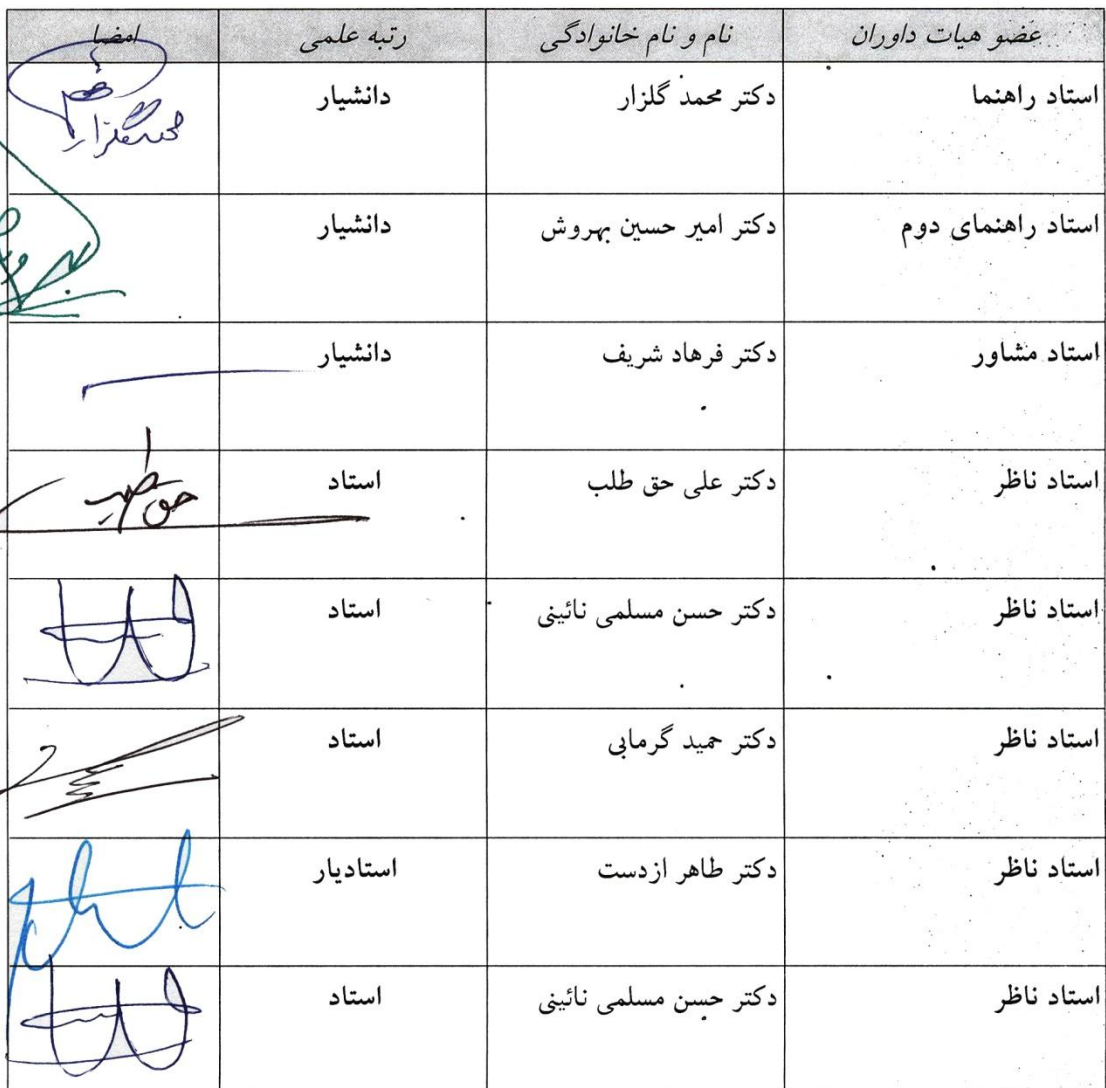 عضو هیات داوران نام و نام خانوادگی رتبه علمی امضا
استاد راهنما دکتر محمد گلزار دانشیار محمد گلزار
استاد راهنمای دوم دکتر امیر حسین بهروش دانشیار
استاد مشاور دکتر فرهاد شریف دانشیار
استاد ناظر دکتر علی حق طلب استاد حق طلب
استاد ناظر دکتر حسن مسلمی نائینی استاد
استاد ناظر دکتر حمید گرمابی استاد
استاد ناظر دکتر طاهر ازدست استادیار
استاد ناظر دکتر حسن مسلمی نائینی استاد